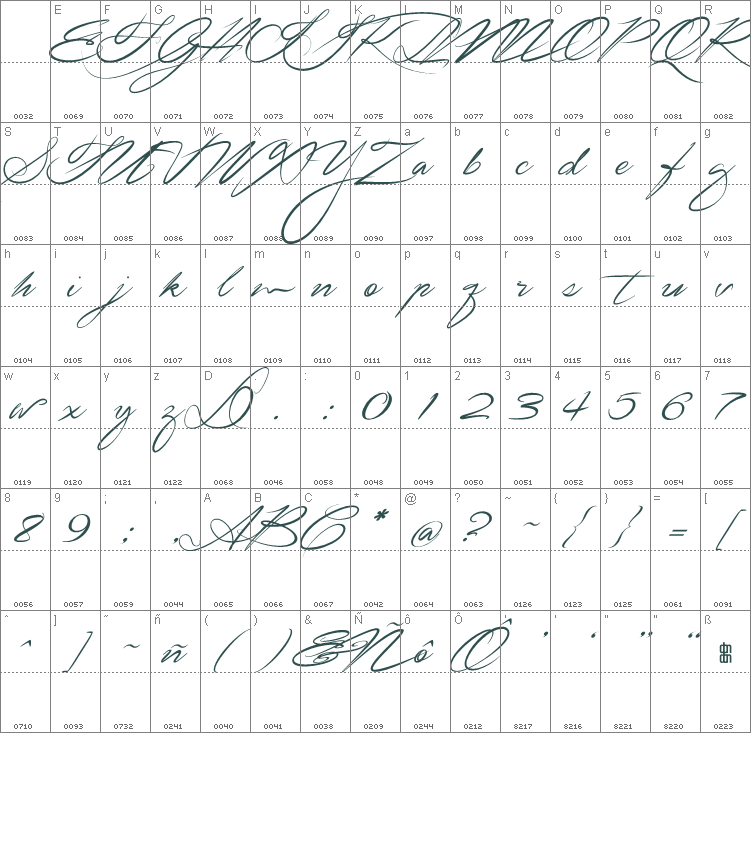 E F G H I J K L M N O P Q R
E F G H I J K L M N O P Q R
0032 0069 0070 0071 0072 0073 0074 0075 0076 0077 0078 0079 0080 0081 0082
S T U V W X Y Z a b c d e f g
S T U V W X Y Z a b c d e f g
0083 0084 0085 0086 0087 0088 0089 0090 0097 0098 0099 0100 0101 0102 0103
h i j k l m n o p q r s t u v
h i j k l m n o p q r s t u v
0104 0105 0106 0107 0108 0109 0110 0111 0112 0113 0114 0115 0116 0117 0118
w x y z D . : 0 1 2 3 4 5 6 7
w x y z D . : 0 1 2 3 4 5 6 7
0119 0120 0121 0122 0068 0046 0058 0048 0049 0050 0051 0052 0053 0054 0055
8 9 ; , A B C * @ ? ~ { } = [
8 9 ; , A B C * @ ? ~ { } = [
0056 0057 0059 0044 0065 0066 0067 0042 0064 0063 0126 0123 0125 0061 0091
ˆ ] ˜ ñ ( ) & Ñ ô Ô ' ' " " ß
ˆ ] ˜ ñ ( ) & Ñ ô Ô ' ' " "
0710 0093 0732 0241 0040 0041 0038 0209 0244 0212 8217 8216 8221 8220 0223